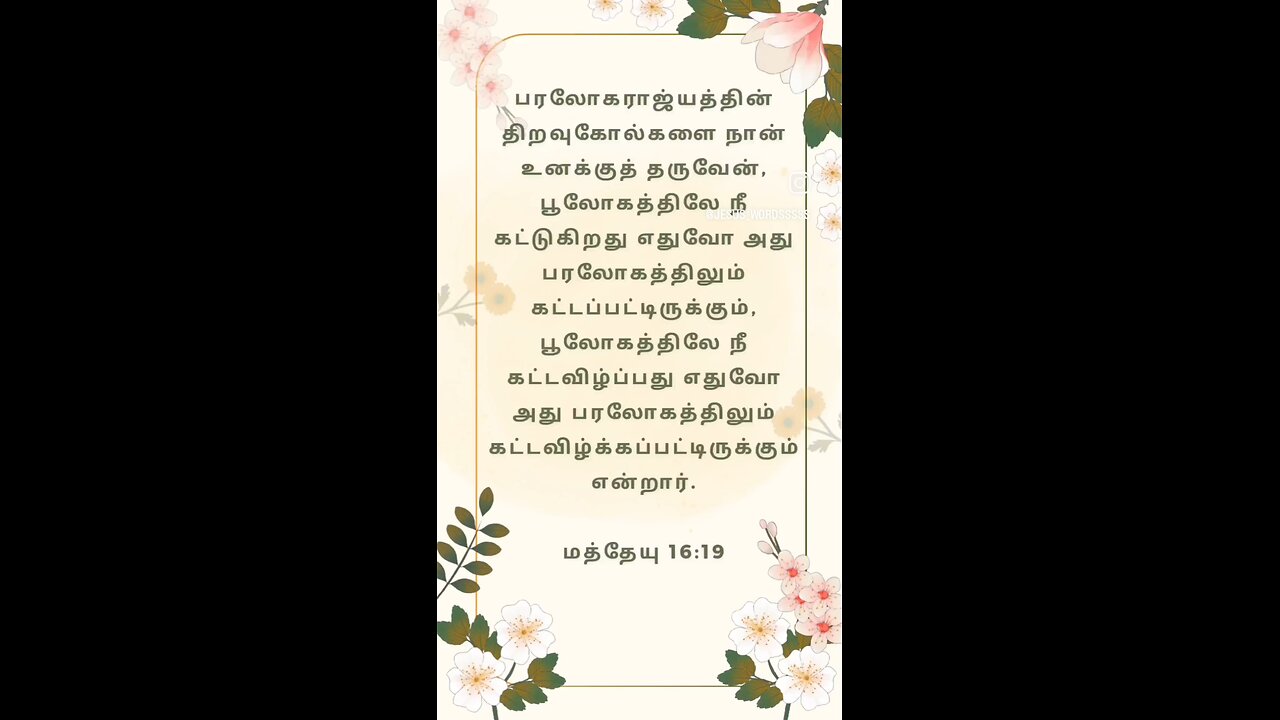 பரலோகராஜ்யத்தின்
திறவுகோல்களை நான்
உனக்குத் தருவேன்,
பூலோகத்திலே நீ
@JESUS-WORDSSSSS
கட்டுகிறது எதுவோ அது
பரலோகத்திலும்
கட்டப்பட்டிருக்கும்,
பூலோகத்திலே நீ
கட்டவிழ்ப்பது எதுவோ
அது பரலோகத்திலும்
கட்டவிழ்க்கப்பட்டிருக்கும்
என்றார்.
மத்தேயு 16:19